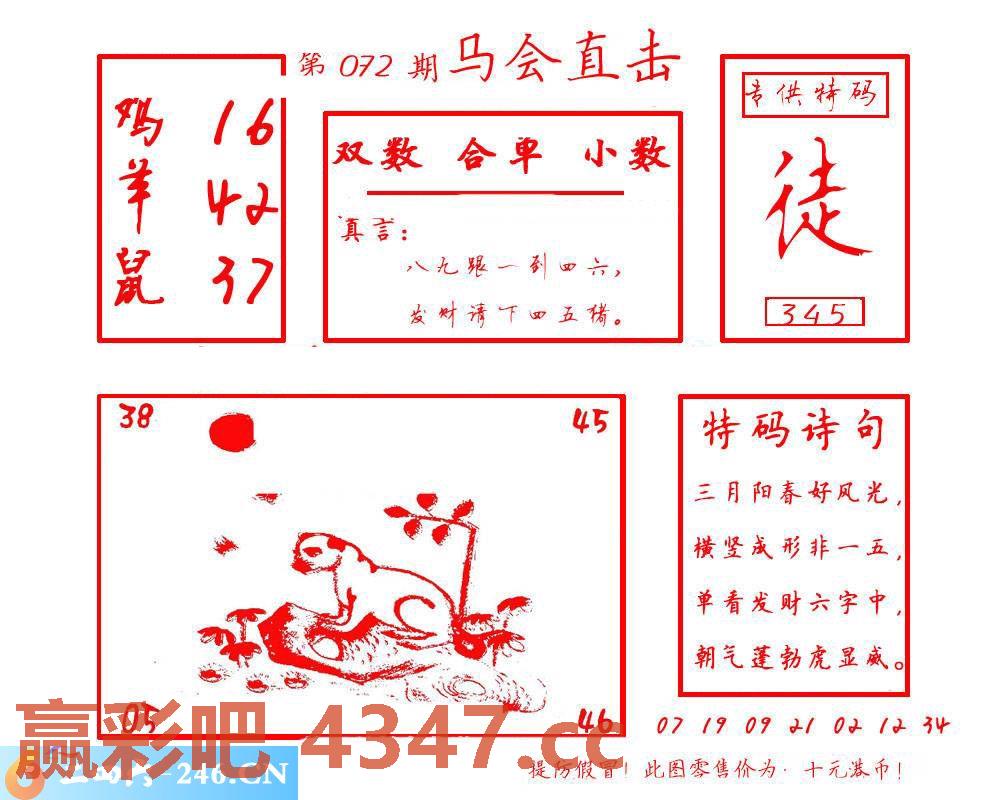 第 072 期 马会直击
鸡 16
羊 42
鼠 37
双数 合单 小数
真言:
八九跟一到四六,
发财请下四五猪。
专供特码
徒
345
38
45
05
46
特码诗句
三月阳春好风光,
横竖成形非一五,
单看发财六字中,
朝气蓬勃虎显威。
07 19 09 21 02 12 34
赢彩吧 4347.cc
-246.CN
提防假冒! 此图零售价为·十元港币!